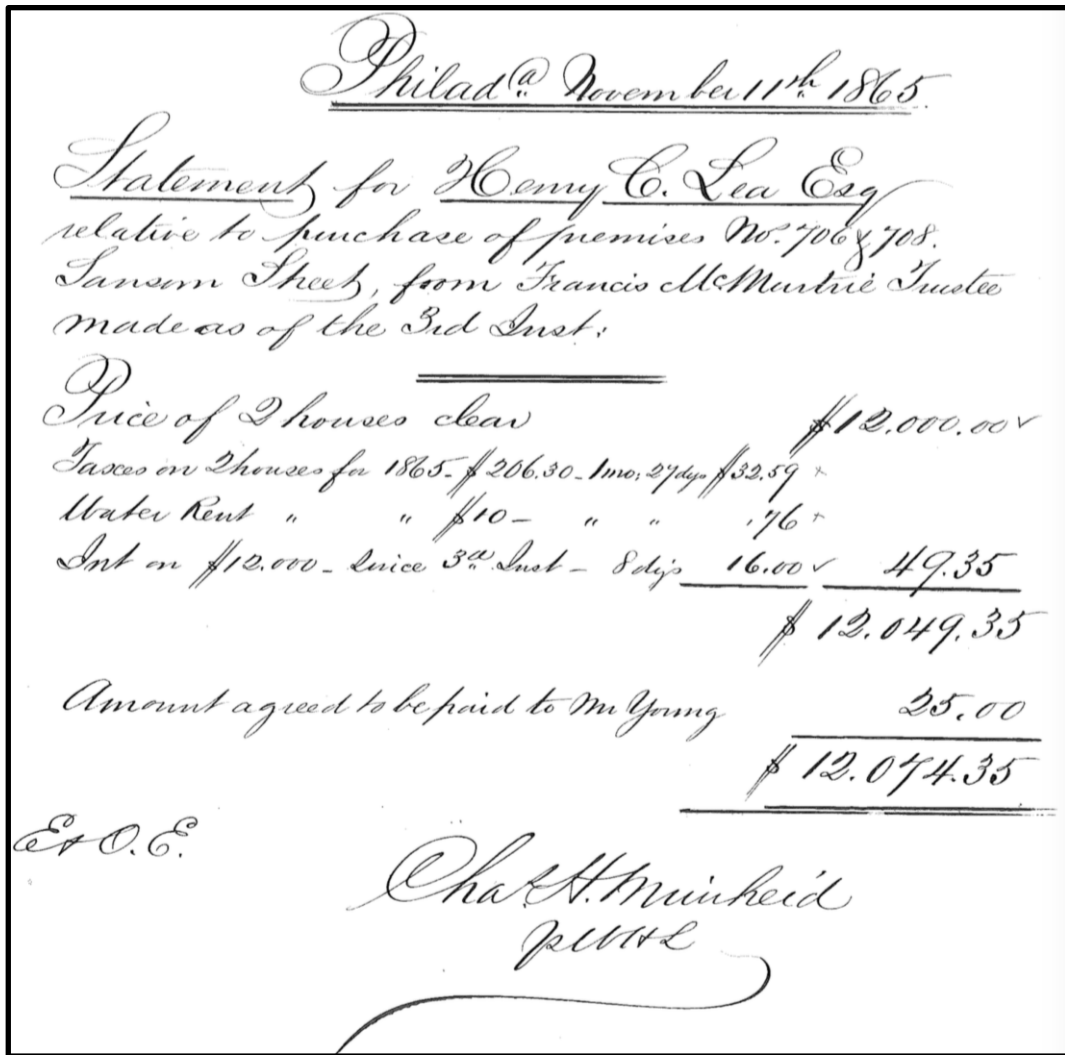 Philadª November 11th 1865.
Statement for Henry C. Lea Esq
relative to purchase of premises No. 706 & 708.
Sansom Street, from Francis McMurtrie Trustee
made as of the 3rd Inst:
Price of 2 houses clear $12.000.00 ✓
Taxes on 2 houses for 1865 - $206.30 - 1 mo; 27 dys $32.59 +
Water Rent " " $10 - " " .76 +
Int on $12.000 - since 3d Inst - 8 dys 16.00 ✓ 49.35
$12.049.35
Amount agreed to be paid to Mr Young 25.00
$12.074.35
E & O.E.
Chas. H. Muirheid